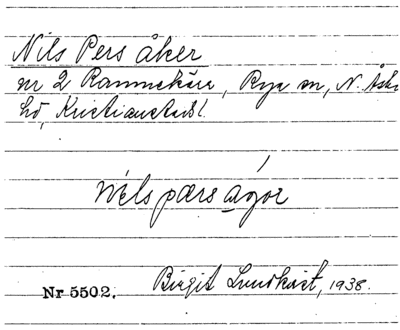 Nils Pers åker
nr 2 Rammekärr, Rya sn, N. Åsbo
hd, Kristianstads l.
nels pærs ågor
Nr 5502. Birgit Lundkvist, 1938.